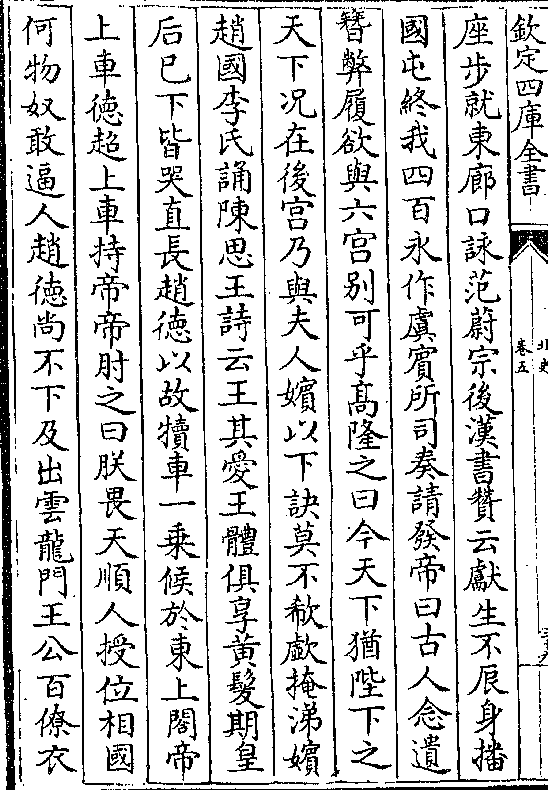 欽定四庫全書
北史
卷五
座步就東廊口詠范蔚宗後漢書賛云獻生不辰身播
國屯終我四百永作虞賓所司奏請發帝曰古人念遺
簪弊履欲與六宫别可乎髙隆之曰今天下猶陛下之
天下况在後宫乃與夫人嬪以下訣莫不欷歔掩涕嬪
趙國李氏誦陳思王詩云王其愛玉體俱享黄髮期皇
后已下皆哭直長趙徳以故犢車一乘候於東上閤帝
上車徳超上車持帝帝肘之曰朕畏天順人授位相國
何物奴敢逼人趙徳尚不下及出雲龍門王公百僚衣